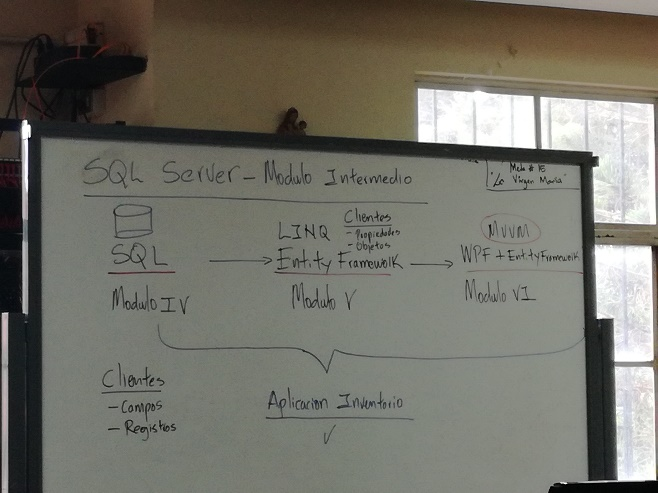 SQL Server - Modulo Intermedio
Meta # 15
"La Virgen María"
SQL
Modulo IV
LINQ
Clientes
- Propiedades
- Objetos
Entity Framework
Modulo V
MVVM
WPF + Entity Framework
Modulo VI
Clientes
- Campos
- Registros
Aplicacion Inventario
✓